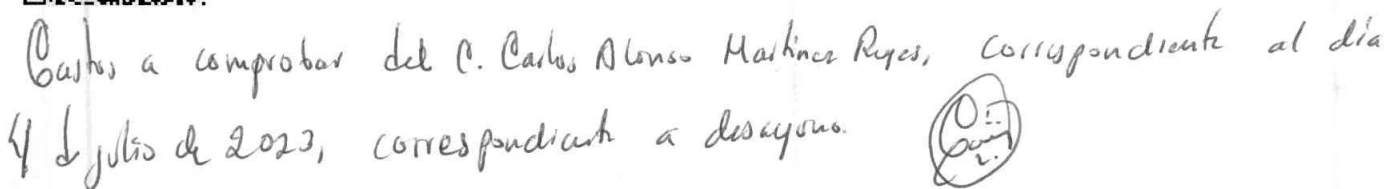 Gastos a comprobar del C. Carlos Alonso Martinez Reyes, correspondiente al día
4 de julio de 2023, correspondiente a desayuno.